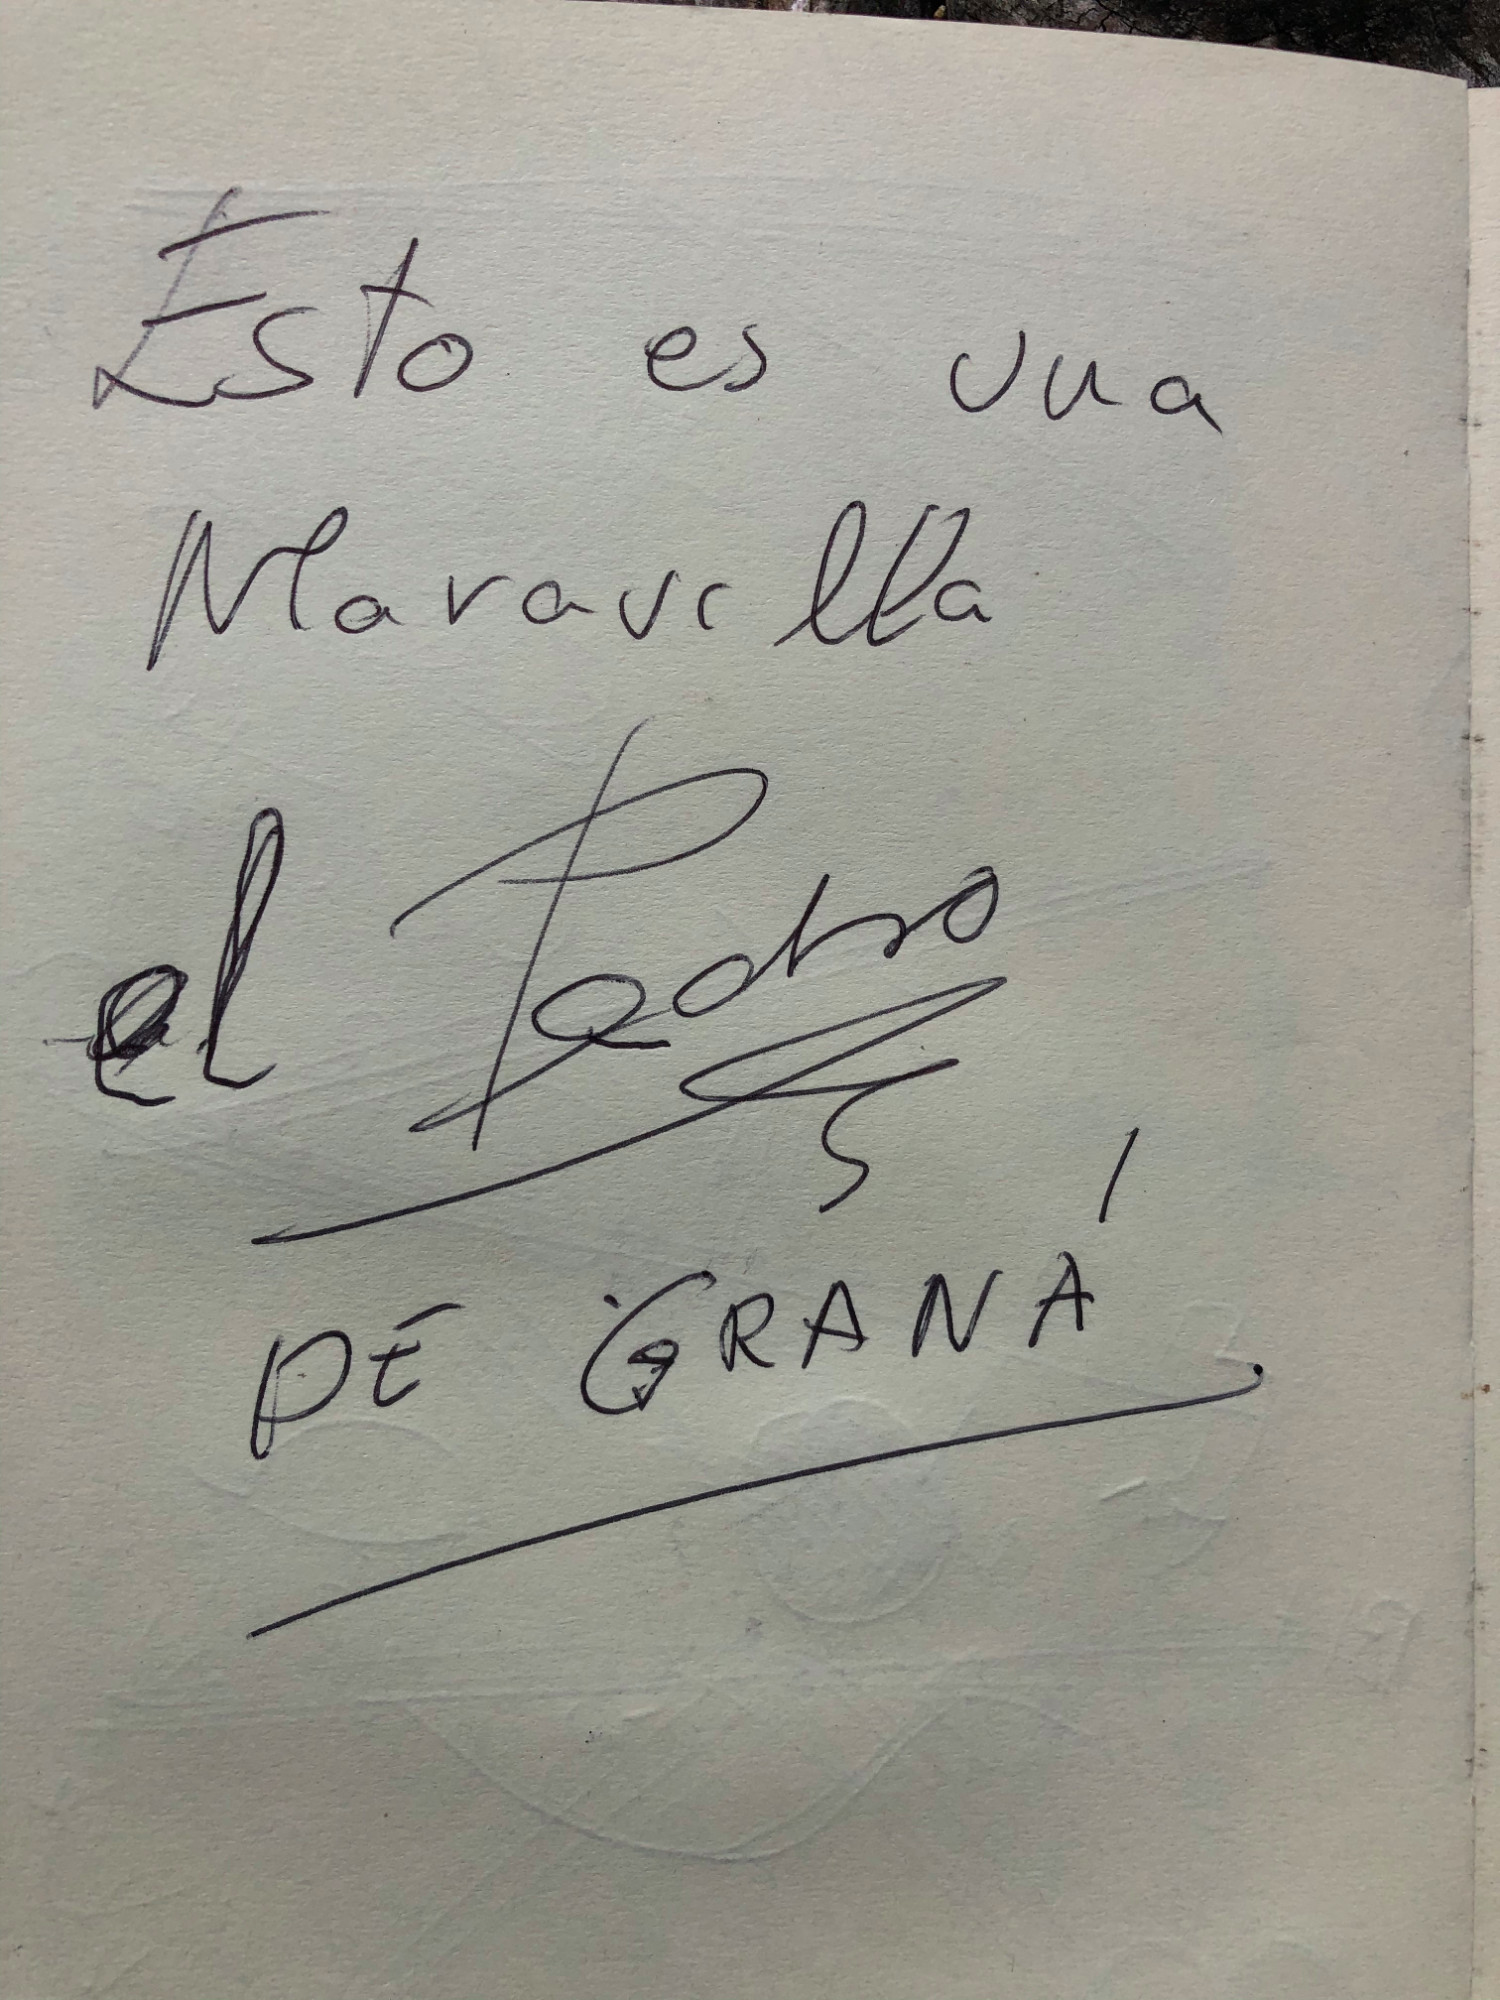 Esto es una
Maravilla
el Pedro
DE GRANÁ